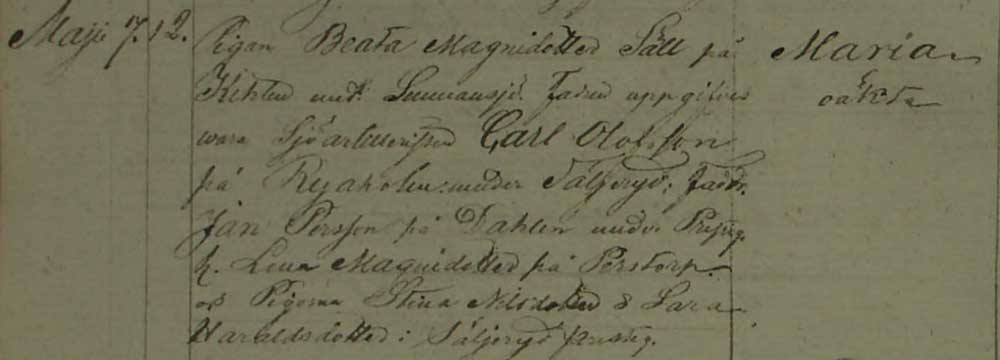 Maji 7. 12. Pigan Beata Magnidotter Säll på Maria
Kihlen und. Lunnansjö. Fadren uppgifves oäkta
wara Sjöartilleristen Carl Olofsson
på Ryaholm under Täljeryd; Fadd.
Jan Persson på Dahlen under
h. Lena Magnidotter på Perstorp.
och Pigorna Stina Nilsdotter & Sara
Haraldsdotter i Säljeryd